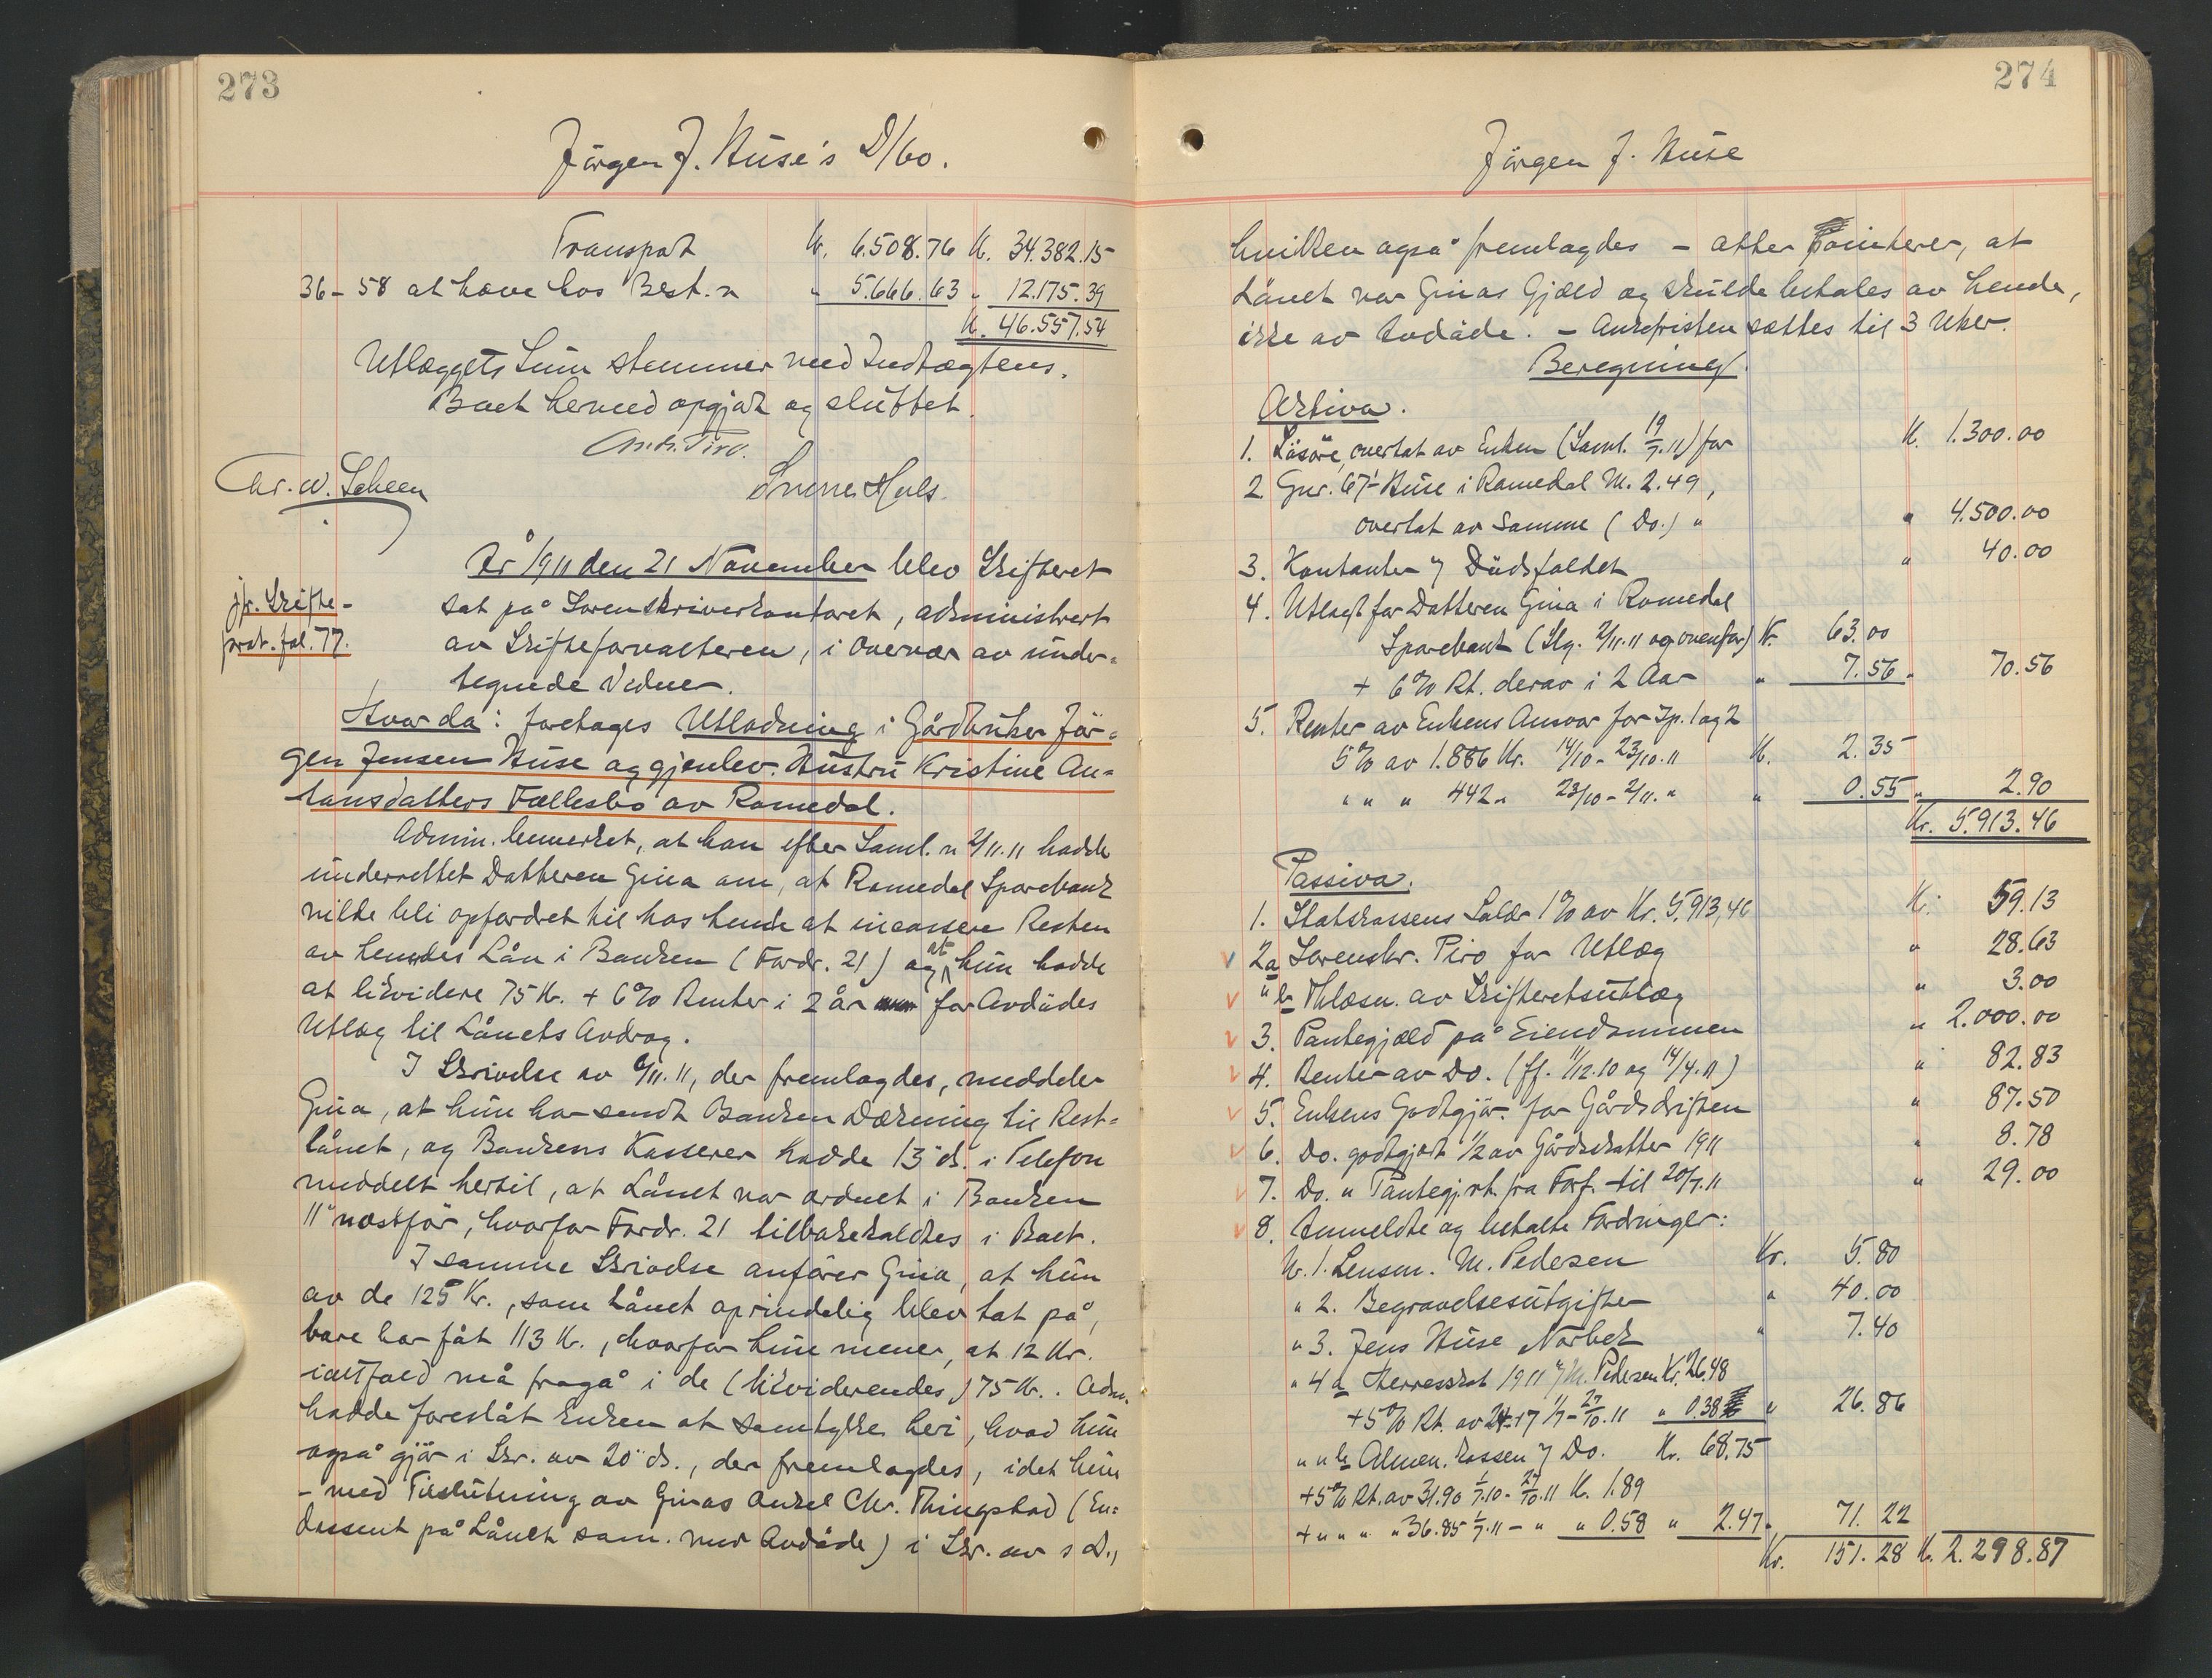 273
Jörgen J. Huse's D/bo.
Transport Kr. 6.508.76 K. 34.382.15
36-58 at have hos Best.n " 5.666.63 " 12.175.39
K. 46.557.54
Utlæggets Sum stemmer med Indtægtens.
Boet hermed opgjort og sluttet.
Andr. Piro.
Chr. W. Scheen
År 1911 den 21 November blev Skifteret
jfr. Skifte-
prot. fol. 77.
sat på Sorenskriverkontoret, administrert
av Skifteforvalteren, i Overvær av under-
tegnede Vidner.
Hvor da: foretages Utlodning i Gårdbruker Jör-
gen Jensen Huse og gjenlev. Hustru Kristine An-
tonsdatters Fællesbo av Romedal.
Admin. bemerket, at han efter Saml. n 2/11.11 hadde
underrettet Datteren Gina om, at Romedal Sparebank
vilde bli opfordret til hos hende at incassere Resten
av hendes Lån i Banken (Fordr. 21) og at hun hadde
at likvidere 75 Kr. + 6% Renter i 2 år for Avdödes
Utlæg til Lånets Avdrag.
I Skrivelse av 6/11.11, der fremlagdes, meddeler
Gina, at hun har sendt Banken Dækning til Rest-
lånet, og Bankens Kasserer hadde 13 ds. i Telefon
meddelt hertil, at Lånet var ordnet i Banken
11 næstför, hvorfor Fordr. 21 tilbakekaldtes i Boet.
I samme Skrivelse anförer Gina, at hun
av de 125 Kr., som Lånet oprindelig blev tat på,
bare har fåt 113 Kr., hvorfor hun mener, at 12 Kr.
ialtfald må fragå i de (likviderendes) 75 Kr. . Adm.
hadde foreslåt Enken at samtykke heri, hvad hun
også gjör i Skr. av 20 ds., der fremlagdes, idet hun
- med Tilslutning av Ginas Onkel Chr. Thingstad (En-
dossent på Lånet sam. med Avdöde) i Skr. av s D.,
274
Jörgen J. Huse
hvilken også fremlagdes - atter pointerer, at
Lånet var Ginas Gjæld og skulde betales av hende,
ikke av Avdöde. - Ankefristen sættes til 3 Uker.
Beregning.
Aktiva.
1. Lösöre, overtat av Enken (Saml. 19/7.11) for K. 1.300.00
2. Gnr. 67/1 Huse i Romedal M. 2.49,
overtat av Samme (Do.) " " 4.500.00
3. Kontanter v/ Dödsfaldet " 40.00
4. Utlagt for Datteren Gina i Romedal
Sparebank (Slg. 2/11.11 og ovenfor) Kr. 63.00
+ 6% Rt. derav i 2 Aar " 7.56 " 70.56
5. Renter av Enkens Ansvar for Ip. 1 og 2
5% av 1.886 Kr. 14/10 - 23/10.11 K. 2.35
" " " 442 " 23/10 - 2/11. " " 0.55 " 2.90
Kr. 5.913.46
Passiva.
1. Statskassens Saldr 1% av Kr. 5.913,46 K. 59.13
2a Sorenskr. Piro for Utlæg " 28.63
" b Thlæsn. av Skifteretsutlæg " 3.00
3. Pantegjæld på Eiendommen " 2.000.00
4. Renter av Do. (ff. 11/12.10 og 14/4.11) " 82.83
5. Enkens Godtgjör. for Gårdsdriften " 87.50
6. Do. godtgjort 1/2 av Gårdsskatter 1911 " 8.78
7. Do. " Pantegj.rt. fra Forf. til 20/7.11 " 29.00
8. Anmeldte og betalte Fordringer:
Nr. 1. Lensm. M. Pedersen Kr. 5.80
" 2. Begravelsesutgifter " 40.00
" 3. Jens Huse Norbek " 7.40
" 4a Herredsskat 1911 v/ M. Pedersen Kr. 26.48
+ 5% Rt. av 24.17 1/7 - 27/10.11 " 0.38 " 26.86
" " b Almen. kassen v/ Do. Kr. 68.75
+ 5% Rt. av 31.90 1/7.10 - 27/10.11 K. 1.89
+ " " " " 36.85 1/7.11 - " " 0.58 " 2.47 " 71.22
Kr. 151.28 K. 2.298.87